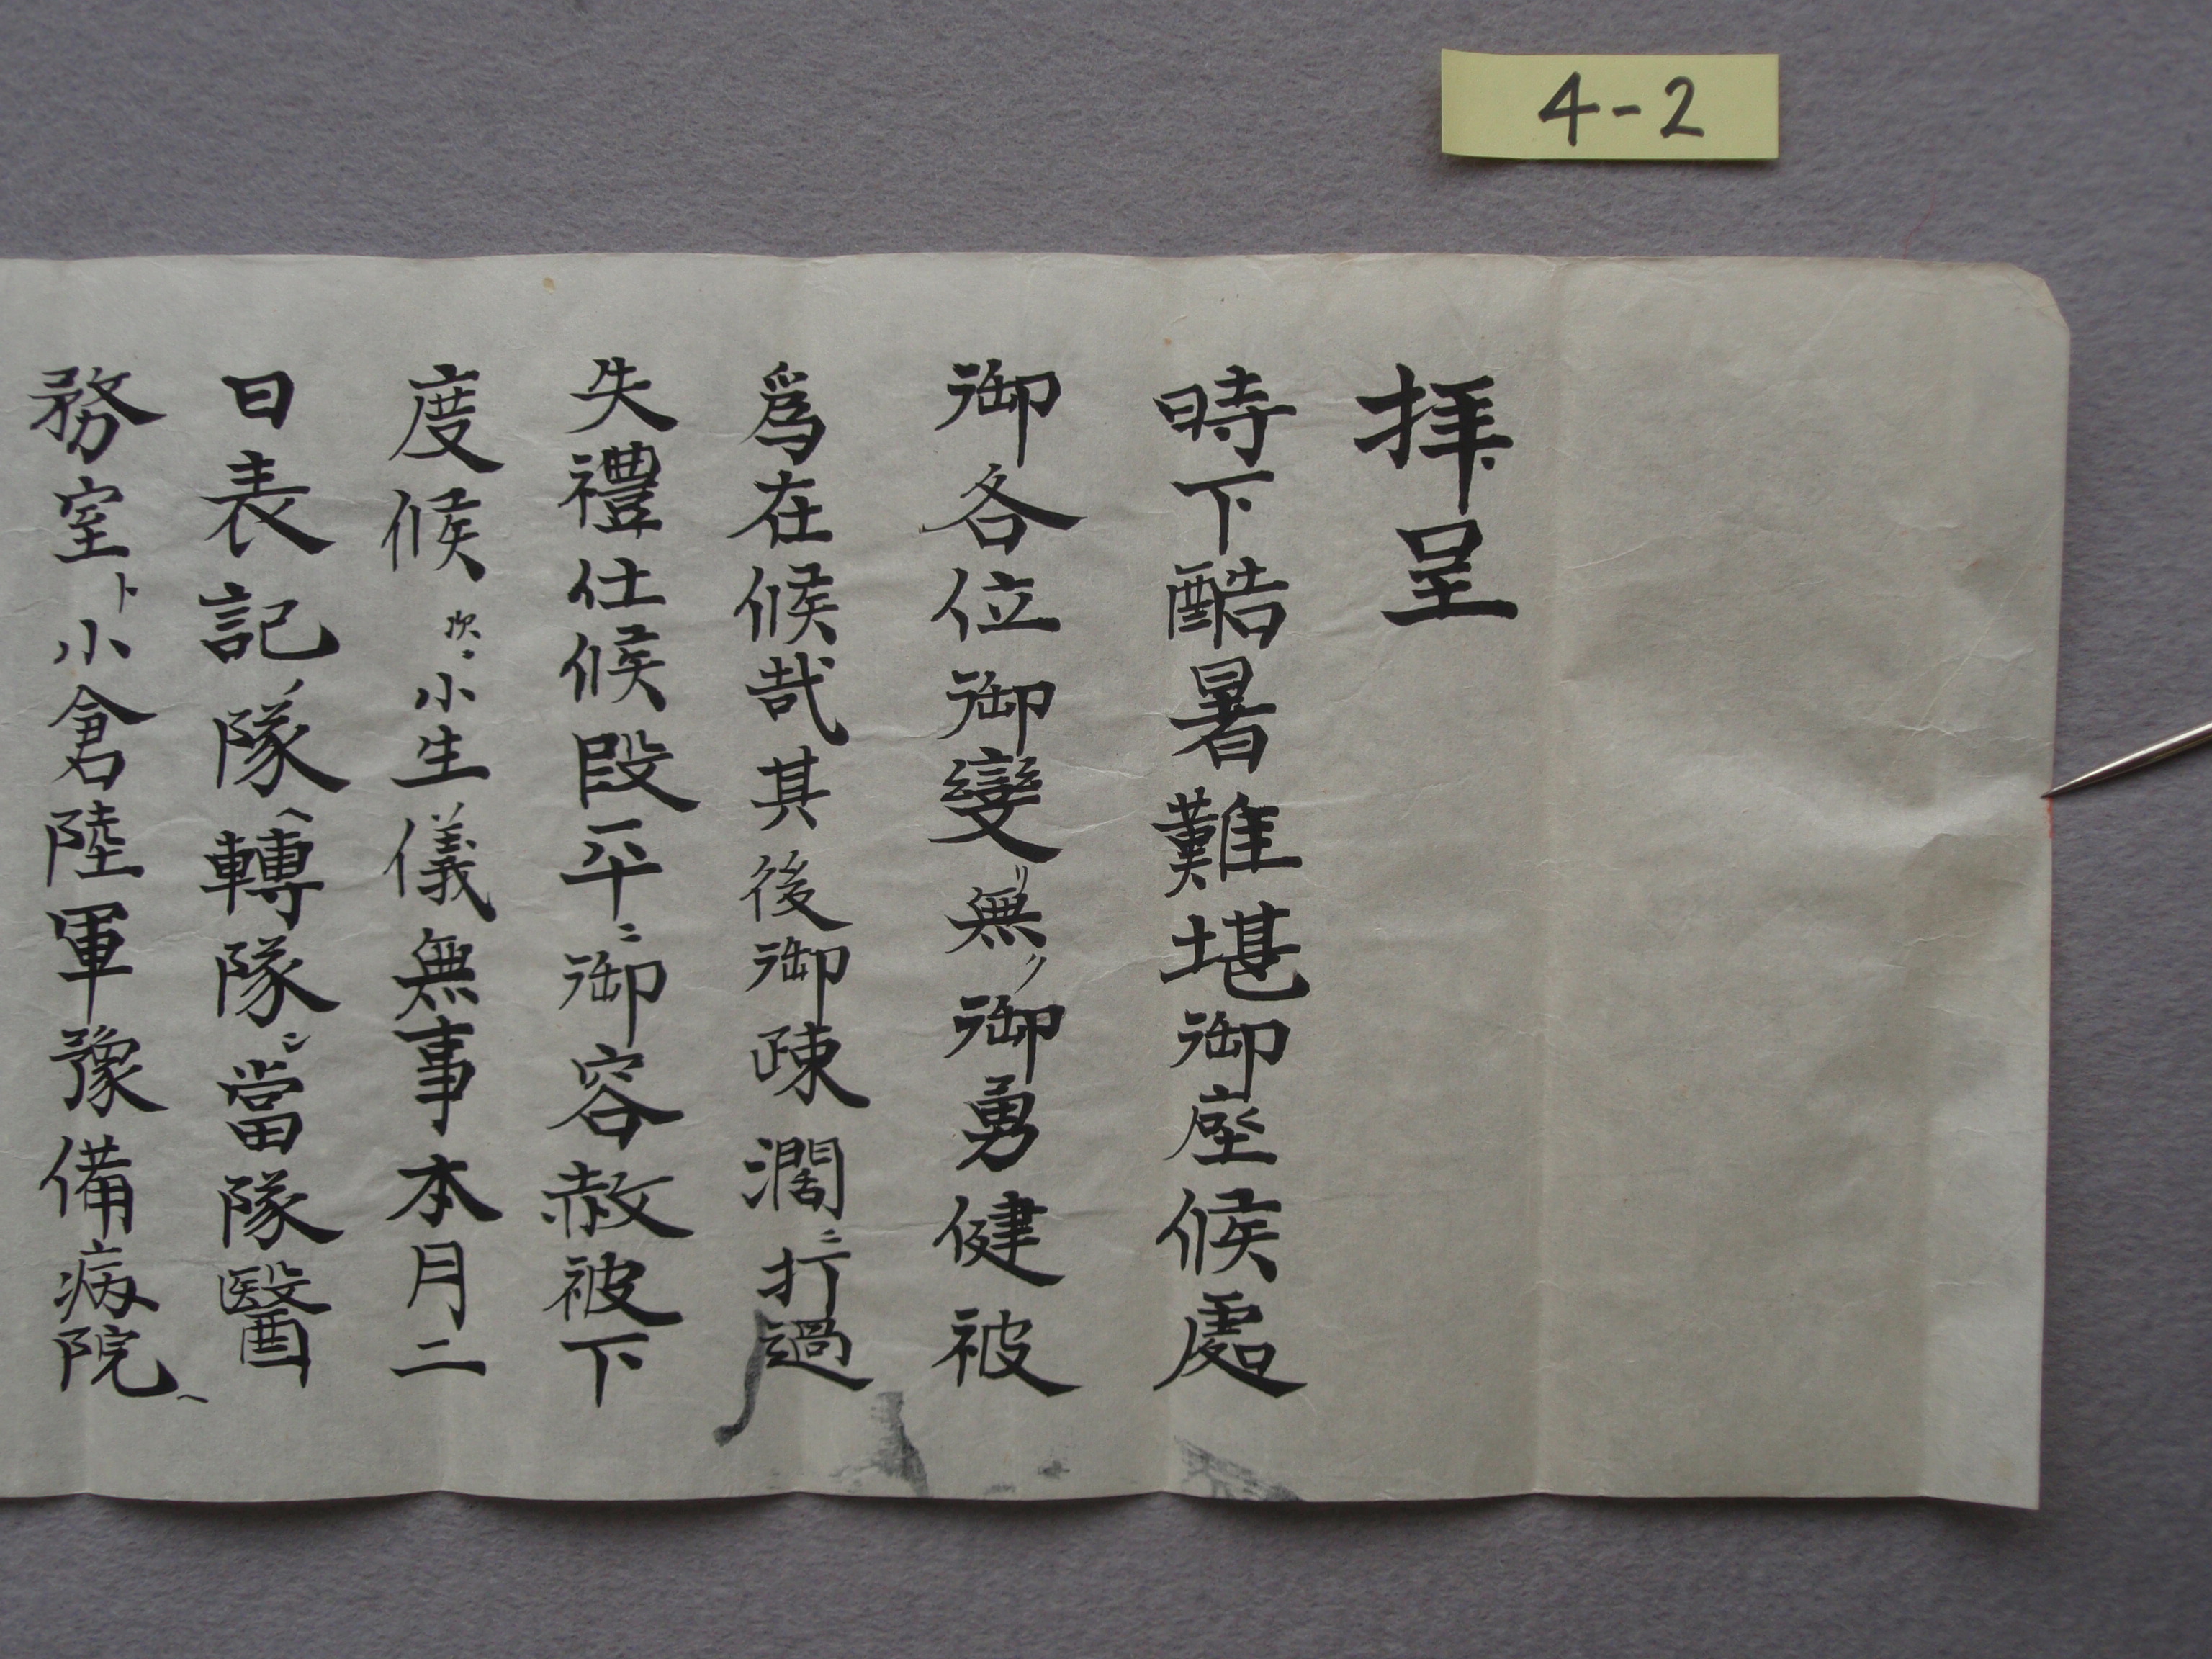 4-2
拝呈
時下酷暑難堪御座候處
御各位御變リ無ク御勇健被
爲在候哉其後御疎濶ニ打過
失禮仕候段平ニ御容赦被下
度候次ニ小生儀無事本月二
日表記隊ヘ轉隊ニ當隊醫
務室ト小倉陸軍豫備病院ヘ